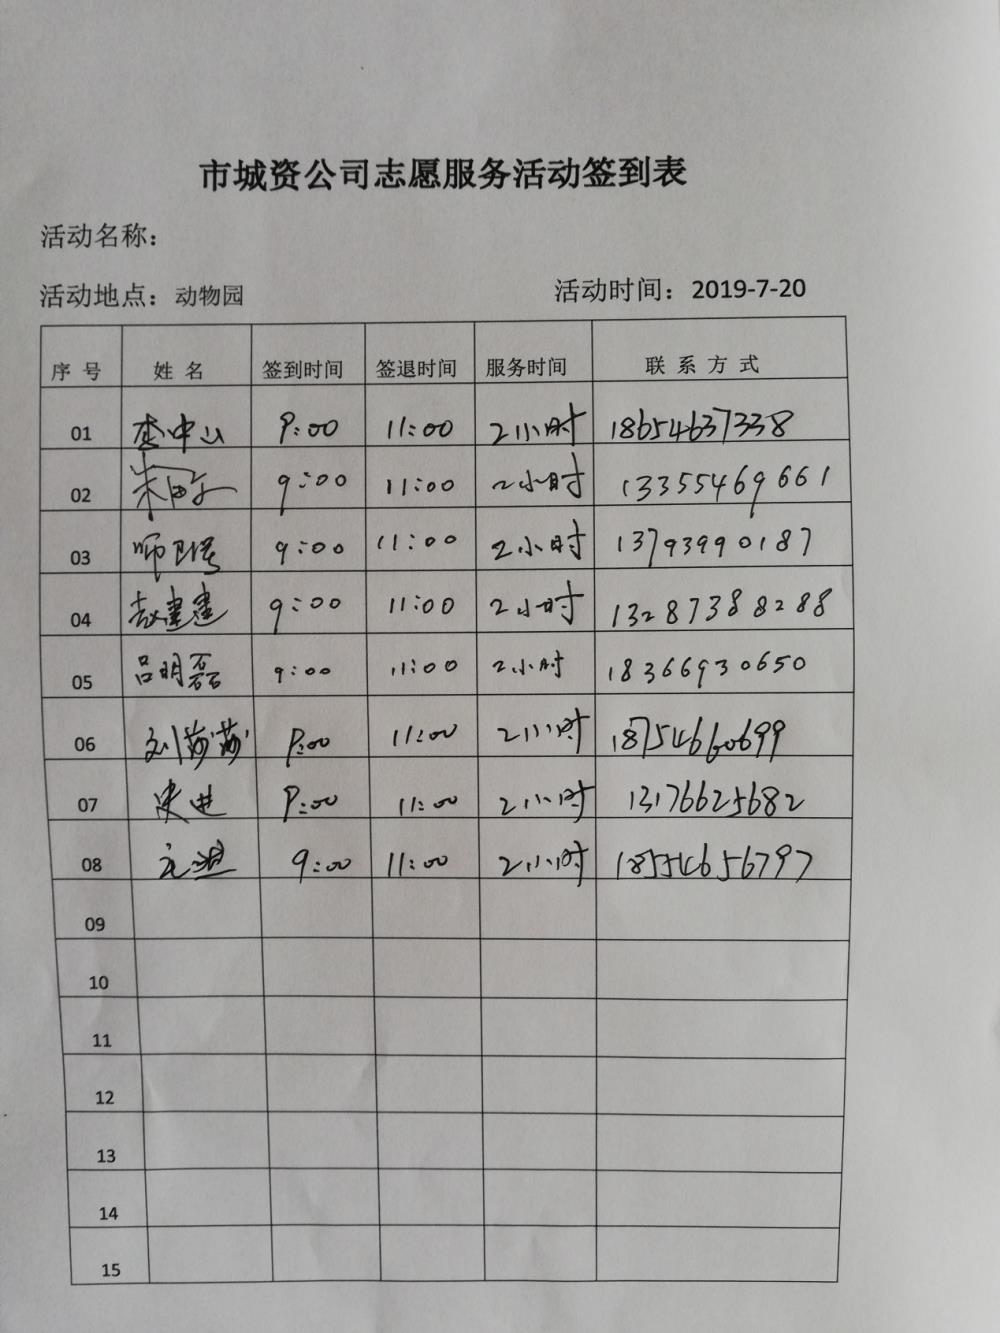 市城资公司志愿服务活动签到表
活动名称：
活动地点：动物园 活动时间：2019-7-20
序号 姓名 签到时间 签退时间 服务时间 联系方式
01 李中山 9:00 11:00 2小时 18654637338
02 9:00 11:00 2小时 13355469661
03 师卫 9:00 11:00 2小时 13793990187
04 赵建建 9:00 11:00 2小时 13287388288
05 吕明磊 9:00 11:00 2小时 18366930650
06 刘莎莎 9:00 11:00 2小时 18754660699
07 9:00 11:00 2小时 13176625682
08 9:00 11:00 2小时 18554656797
09
10
11
12
13
14
15